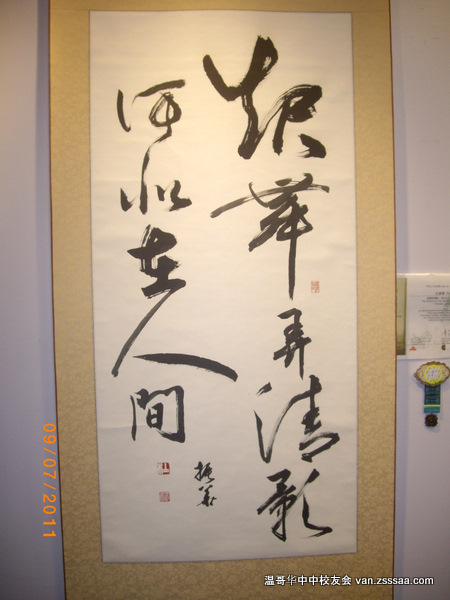 起舞弄清影
何似在人間
09/07/2011
温哥华中中校友会 van.zsssaa.com